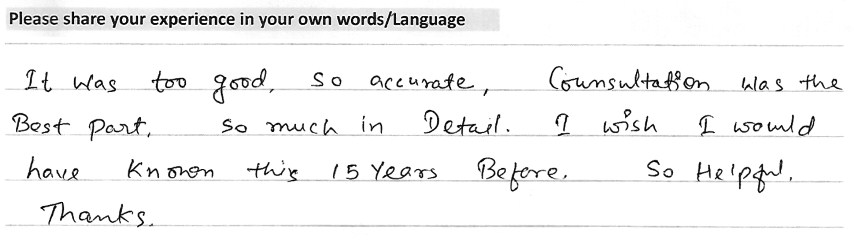 Please share your experience in your own words/Language
It was too good, so accurate, Counsultation was the
Best part, so much in Detail. I wish I would
have Known this 15 Years Before. So Helpful.
Thanks.